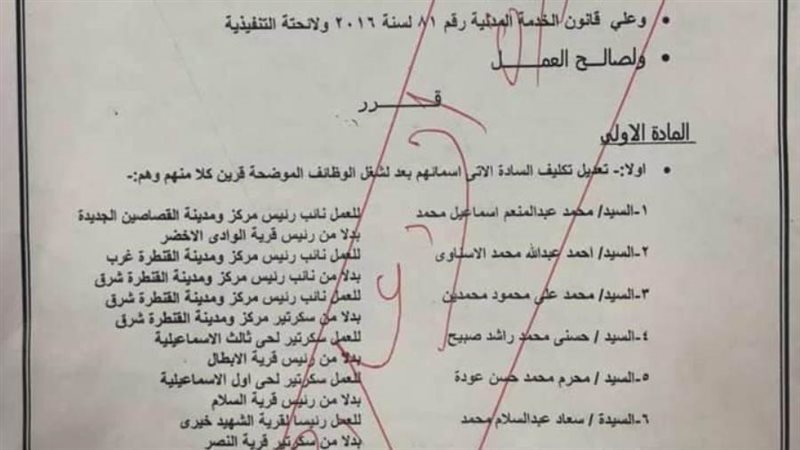 وعلي قانون الخدمة المدنية رقم ٨١ لسنة ٢٠١٦ ولائحتة التنفيذية
ولصالـــح العمـــــل
قـــــــرر
المادة الاولي
اولا:- تعديل تكليف السادة الاتى اسمائهم بعد لشغل الوظائف الموضحة قرين كلا منهم وهم:-
١-السيد/ محمد عبدالمنعم اسماعيل محمد للعمل نائب رئيس مركز ومدينة القصاصين الجديدة
بدلا من رئيس قرية الوادى الاخضر
٢-السيد/ احمد عبدالله محمد الاسناوى للعمل نائب رئيس مركز ومدينة القنطرة غرب
بدلا من نائب رئيس مركز ومدينة القنطرة شرق
٣-السيد/ محمد على محمود محمدين للعمل نائب رئيس مركز ومدينة القنطرة شرق
بدلا من سكرتير مركز ومدينة القنطرة شرق
٤-السيد / حسنى محمد راشد صبيح للعمل سكرتير لحى ثالث الاسماعيلية
بدلا من رئيس قرية الابطال
٥-السيد / محرم محمد حسن عودة للعمل سكرتير لحى اول الاسماعيلية
بدلا من رئيس قرية السلام
٦-السيدة / سعاد عبدالسلام محمد للعمل رئيسا لقرية الشهيد خيرى
بدلا من سكرتير قرية النصر